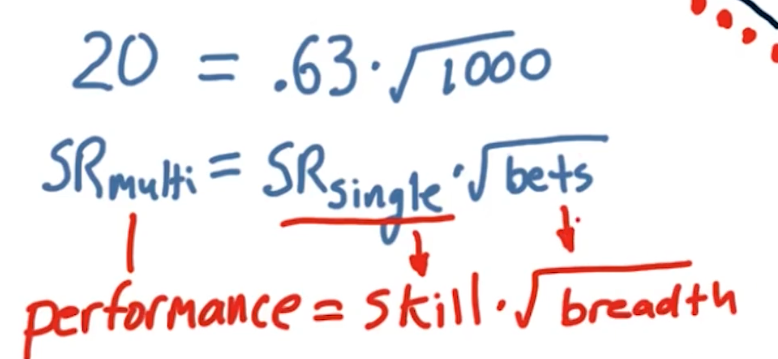 20 = .63·√1000
SRmulti = SRsingle·√bets
performance = skill·√breadth